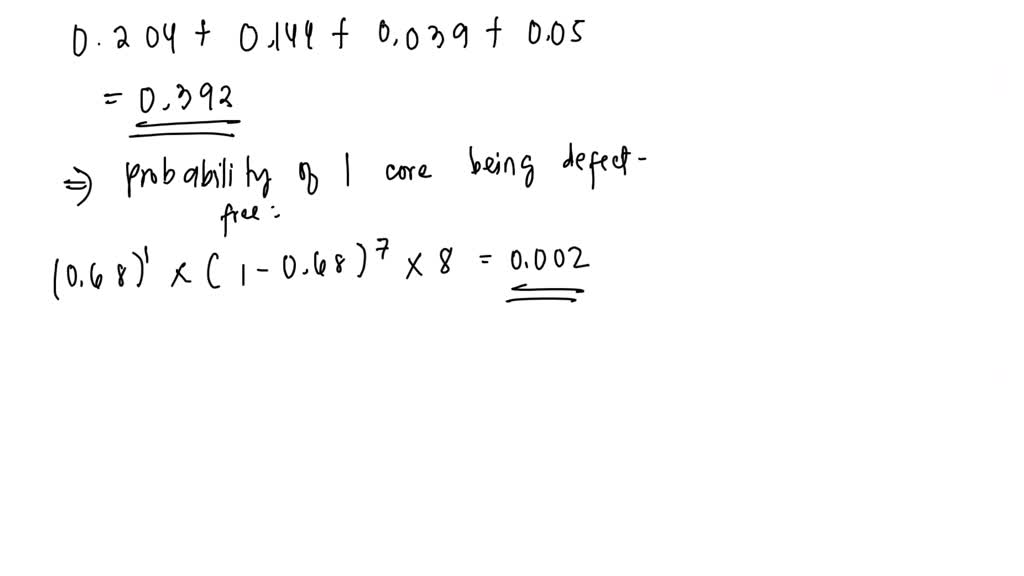 0.204 + 0.144 + 0.039 + 0.05
= 0.392
⇒ probability of 1 core being defect-
free:
(0.68)¹ × (1 - 0.68)⁷ × 8 = 0.002